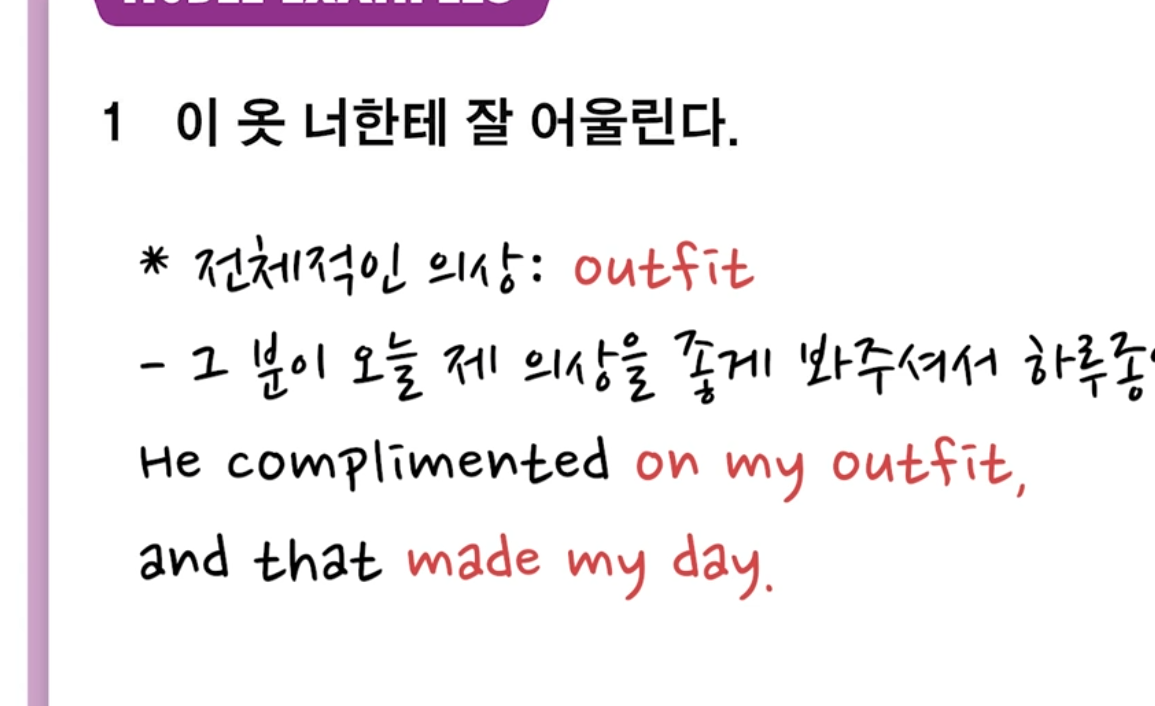 MODEL EXAMPLES
1 이 옷 너한테 잘 어울린다.
* 전체적인 의상: outfit
- 그 분이 오늘 제 의상을 좋게 봐주셔서
He complimented on my outfit,
and that made my day.